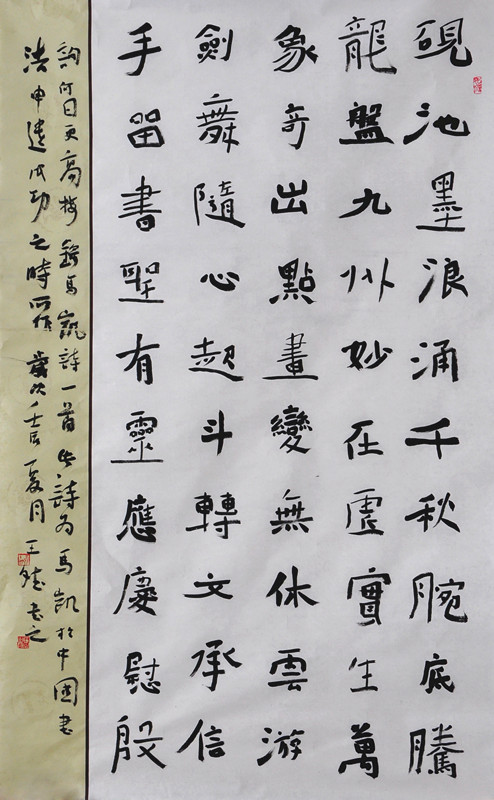 硯池墨浪涌千秋腕底騰
龍盤九州妙在虛實生萬
象奇出點畫變無休雲游
劍舞隨心起斗轉文承信
手留書聖有靈應慶慰殷
日更高樓錄馬凱詩一首此詩為馬凱於中國書
法申遺成功之時所作歲次壬辰夏月王書之